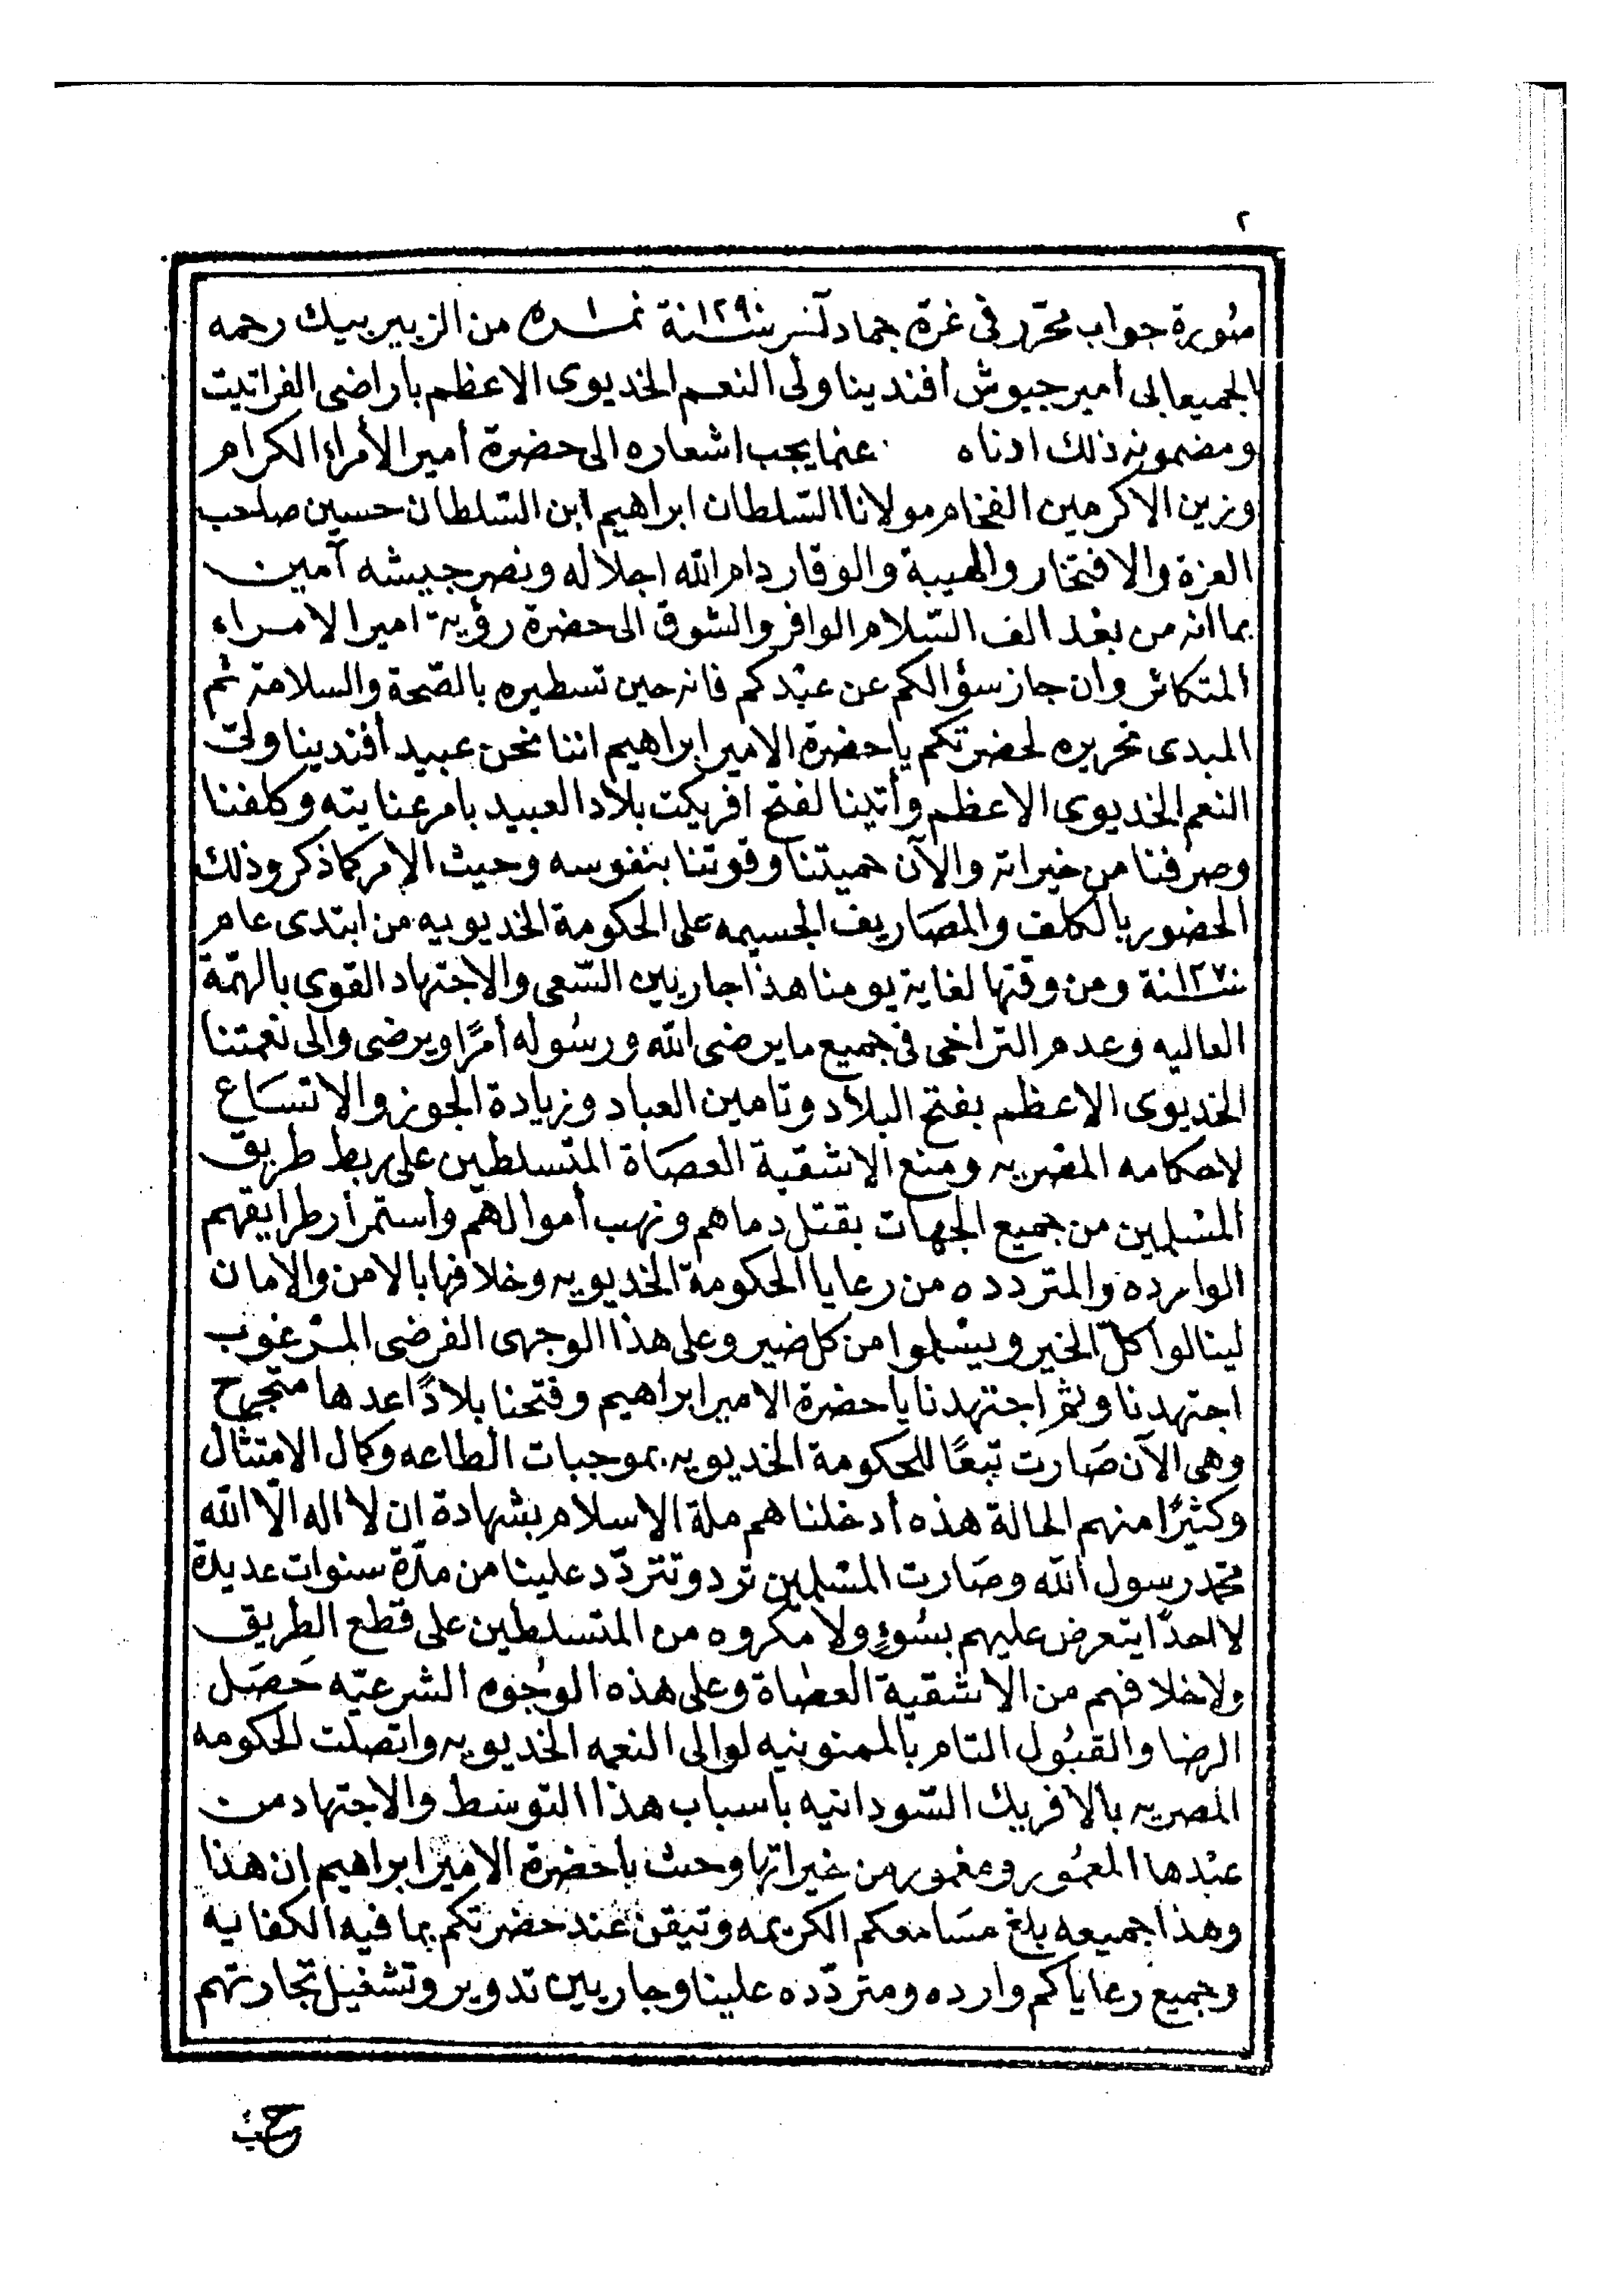 ٢
صورة جواب محرر فى غرة جماد آخر سنة ١٢٩٠ نمره ١ من الزبير بيك رحمه
الجميعابى أمير جيوش أفندينا ولى النعم الخديوى الاعظم بأراضى الفراتيت
ومضمونه ذلك ادناه عنما يجب اشعاره الى حضرة أمير الأمراء الكرام
وزين الاكرمين الفخام مولانا السّلطان ابراهيم ابن السّلطان حسين صاحب
العزة والافتخار والهيبة والوقار دام الله اجلاله ونصر جيشه آمين
بما انه من بعد الف السّلام الوافر والشوق الى حضرة رؤية امير الامراء
المتكاثر وان جاز سؤالكم عن عبدكم فانه حين تسطيره بالصّحة والسلامة ثم
المبدى تحريره لحضرتكم يا حضرة الامير ابراهيم اننا نحن عبيد أفندينا ولىّ
النعم الخديوى الاعظم وأتينا لفتح افريكت بلاد العبيد بامر عنايته وكلفنا
وصرفنا من خيراته والآن حميتنا وقوتنا بنفوسه وحيث الامر كما ذكر وذلك
الحضور بالكلف والمصاريف الجسيمه على الحكومة الخديوييه من ابتدى عام
سنة ١٢٧٠ ومن وقتها لغاية يومنا هذا جاريين السّعى والاجتهاد القوى بالهمّة
العاليه وعدم التراخى فى جميع ما يرضى الله ورسوله أمرًا ويرضى والى نعمتنا
الخديوى الاعظم بفتح البلاد وتامين العباد وزيادة الجوز والاتساع
لاحكامه المصريه ومنع الاشقية العصاة المتسلطين على ربط طريق
المسلمين من جميع الجهات بقتل دماهم ونهب أموالهم وأستمرار طرايقهم
الوارده والمتردده من رعايا الحكومة الخديويه وخلافها بالامن والامان
لينالوا كلّ الخير ويسلموا من كل ضير وعلى هذا الوجهى الفرضى المرغوب
اجتهدنا وثم اجتهدنا يا حضرة الامير ابراهيم وفتحنا بلادًا عدها متجرح
وهى الآن صارت تبعًا للحكومة الخديويه بموجبات الطاعه وكمال الامتثال
وكثيرًا منهم الحالة هذه أدخلناهم ملة الاسلام بشهادة ان لا اله الّا الله
محمد رسول الله وصارت المسلمين ترد وتتردّد علينا من مدّة سنوات عديدة
لا احدًا يتعرض عليهم بسُوءٍ ولا مكروه من المتسلطين على قطع الطريق
ولا خلافهم من الاشقية العصاة وعلى هذه الوجوه الشرعيّه حَصَل
الرضا والقبُول التام بالممنونيه لوالى النعمه الخديويه واتصلت الحكومه
المصريه بالافريك السّودانيه باسباب هذا التوسّط والاجتهاد من
عبْدها المعمُور ومغموره من خيراتها وحيث يا حضرة الامير ابراهيم ان هذا
وهذا جميعه بلغ مسَامعكم الكريمه وتيقن عند حضرتكم بما فيه الكفايه
وجميع رعاياكم وارده ومتردّده علينا وجاريين تدوير وتشغيل تجارتهم